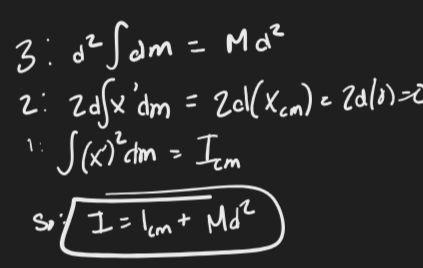 3: d²∫dm = Md²
2: 2d∫x'dm = 2d(x_cm) = 2d(0)=0
1: ∫(x')²dm = I_cm
So: I = I_cm + Md²